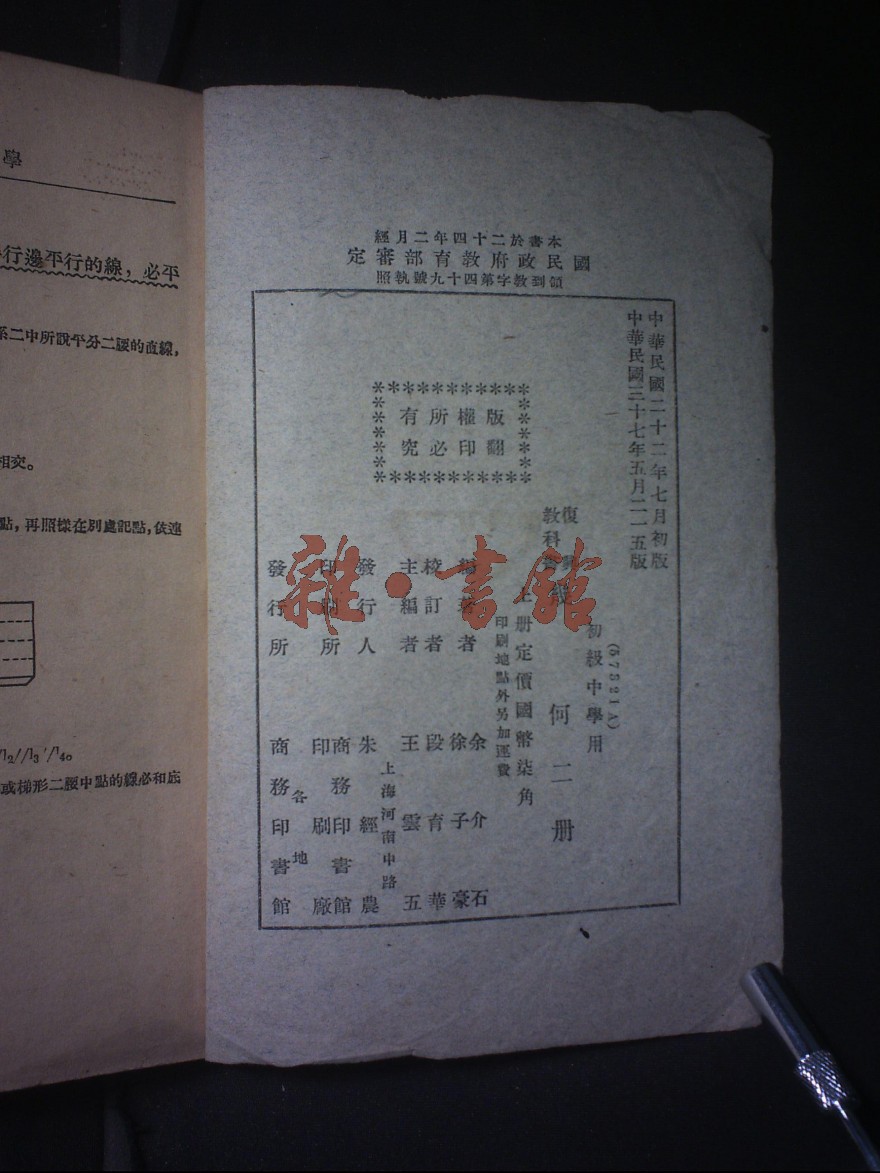 學
行邊平行的線，必平
系二中所說平分二腰的直線，
相交。
點，再照樣在別處記點，依連
或梯形二腰中點的線必和底
本書於二十四年二月經
國民政府教育部審定
領到教字第四十九號執照
中華民國二十二年七月初版
中華民國三十七年五月一一五版
(57321A)
初級中學用
復興
教科書
幾何二册
上册定價國幣柒角
印刷地點外另加運費
版權所有
翻印必究
編著者 余介石 徐子豪
校訂者 段育華
主編者 王雲五
上海河南中路
發行人 朱經農
印刷所 商務印書館
印刷廠
各地
發行所 商務印書館
雜·書館